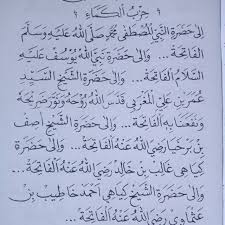 ؟ حِزْبُ السَّمَاءِ ؟
إِلَى حَضْرَةِ النَّبِيِّ الْمُصْطَفَى مُحَمَّدٍ صَلَّى اللهُ عَلَيْهِ وَسَلَّمَ
الْفَاتِحَةْ ... وَإِلَى حَضْرَةِ نَبِيِّ اللهِ يُوْسُفَ عَلَيْهِ
السَّلَامُ الْفَاتِحَةْ ... وَإِلَى حَضْرَةِ الشَّيْخِ السَّيِّدِ
عُمَرَ بْنِ عَلِيِّ الْمَغْرَبِي قَدَّسَ اللهُ رُوْحَهُ وَنَوَّرَ ضَرِيْحَهُ
وَنَفَعَنَا بِهِ الْفَاتِحَةْ ... وَإِلَى حَضْرَةِ الشَّيْخِ آصِفَ
بْنِ بَرْخِيَا رَضِيَ اللهُ عَنْهُ الْفَاتِحَةْ ... وَإِلَى حَضْرَةِ
كِيَاهِي غَالِبْ بْنِ خَالِدْ رَضِيَ اللهُ عَنْهُ الْفَاتِحَةْ ...
وَإِلَى حَضْرَةِ الشَّيْخِ كِيَاهِي أَحْمَدْ خَاطِيبْ بْنِ
عَثْمَاوِي رَضِيَ اللهُ عَنْهُ الْفَاتِحَةْ ...